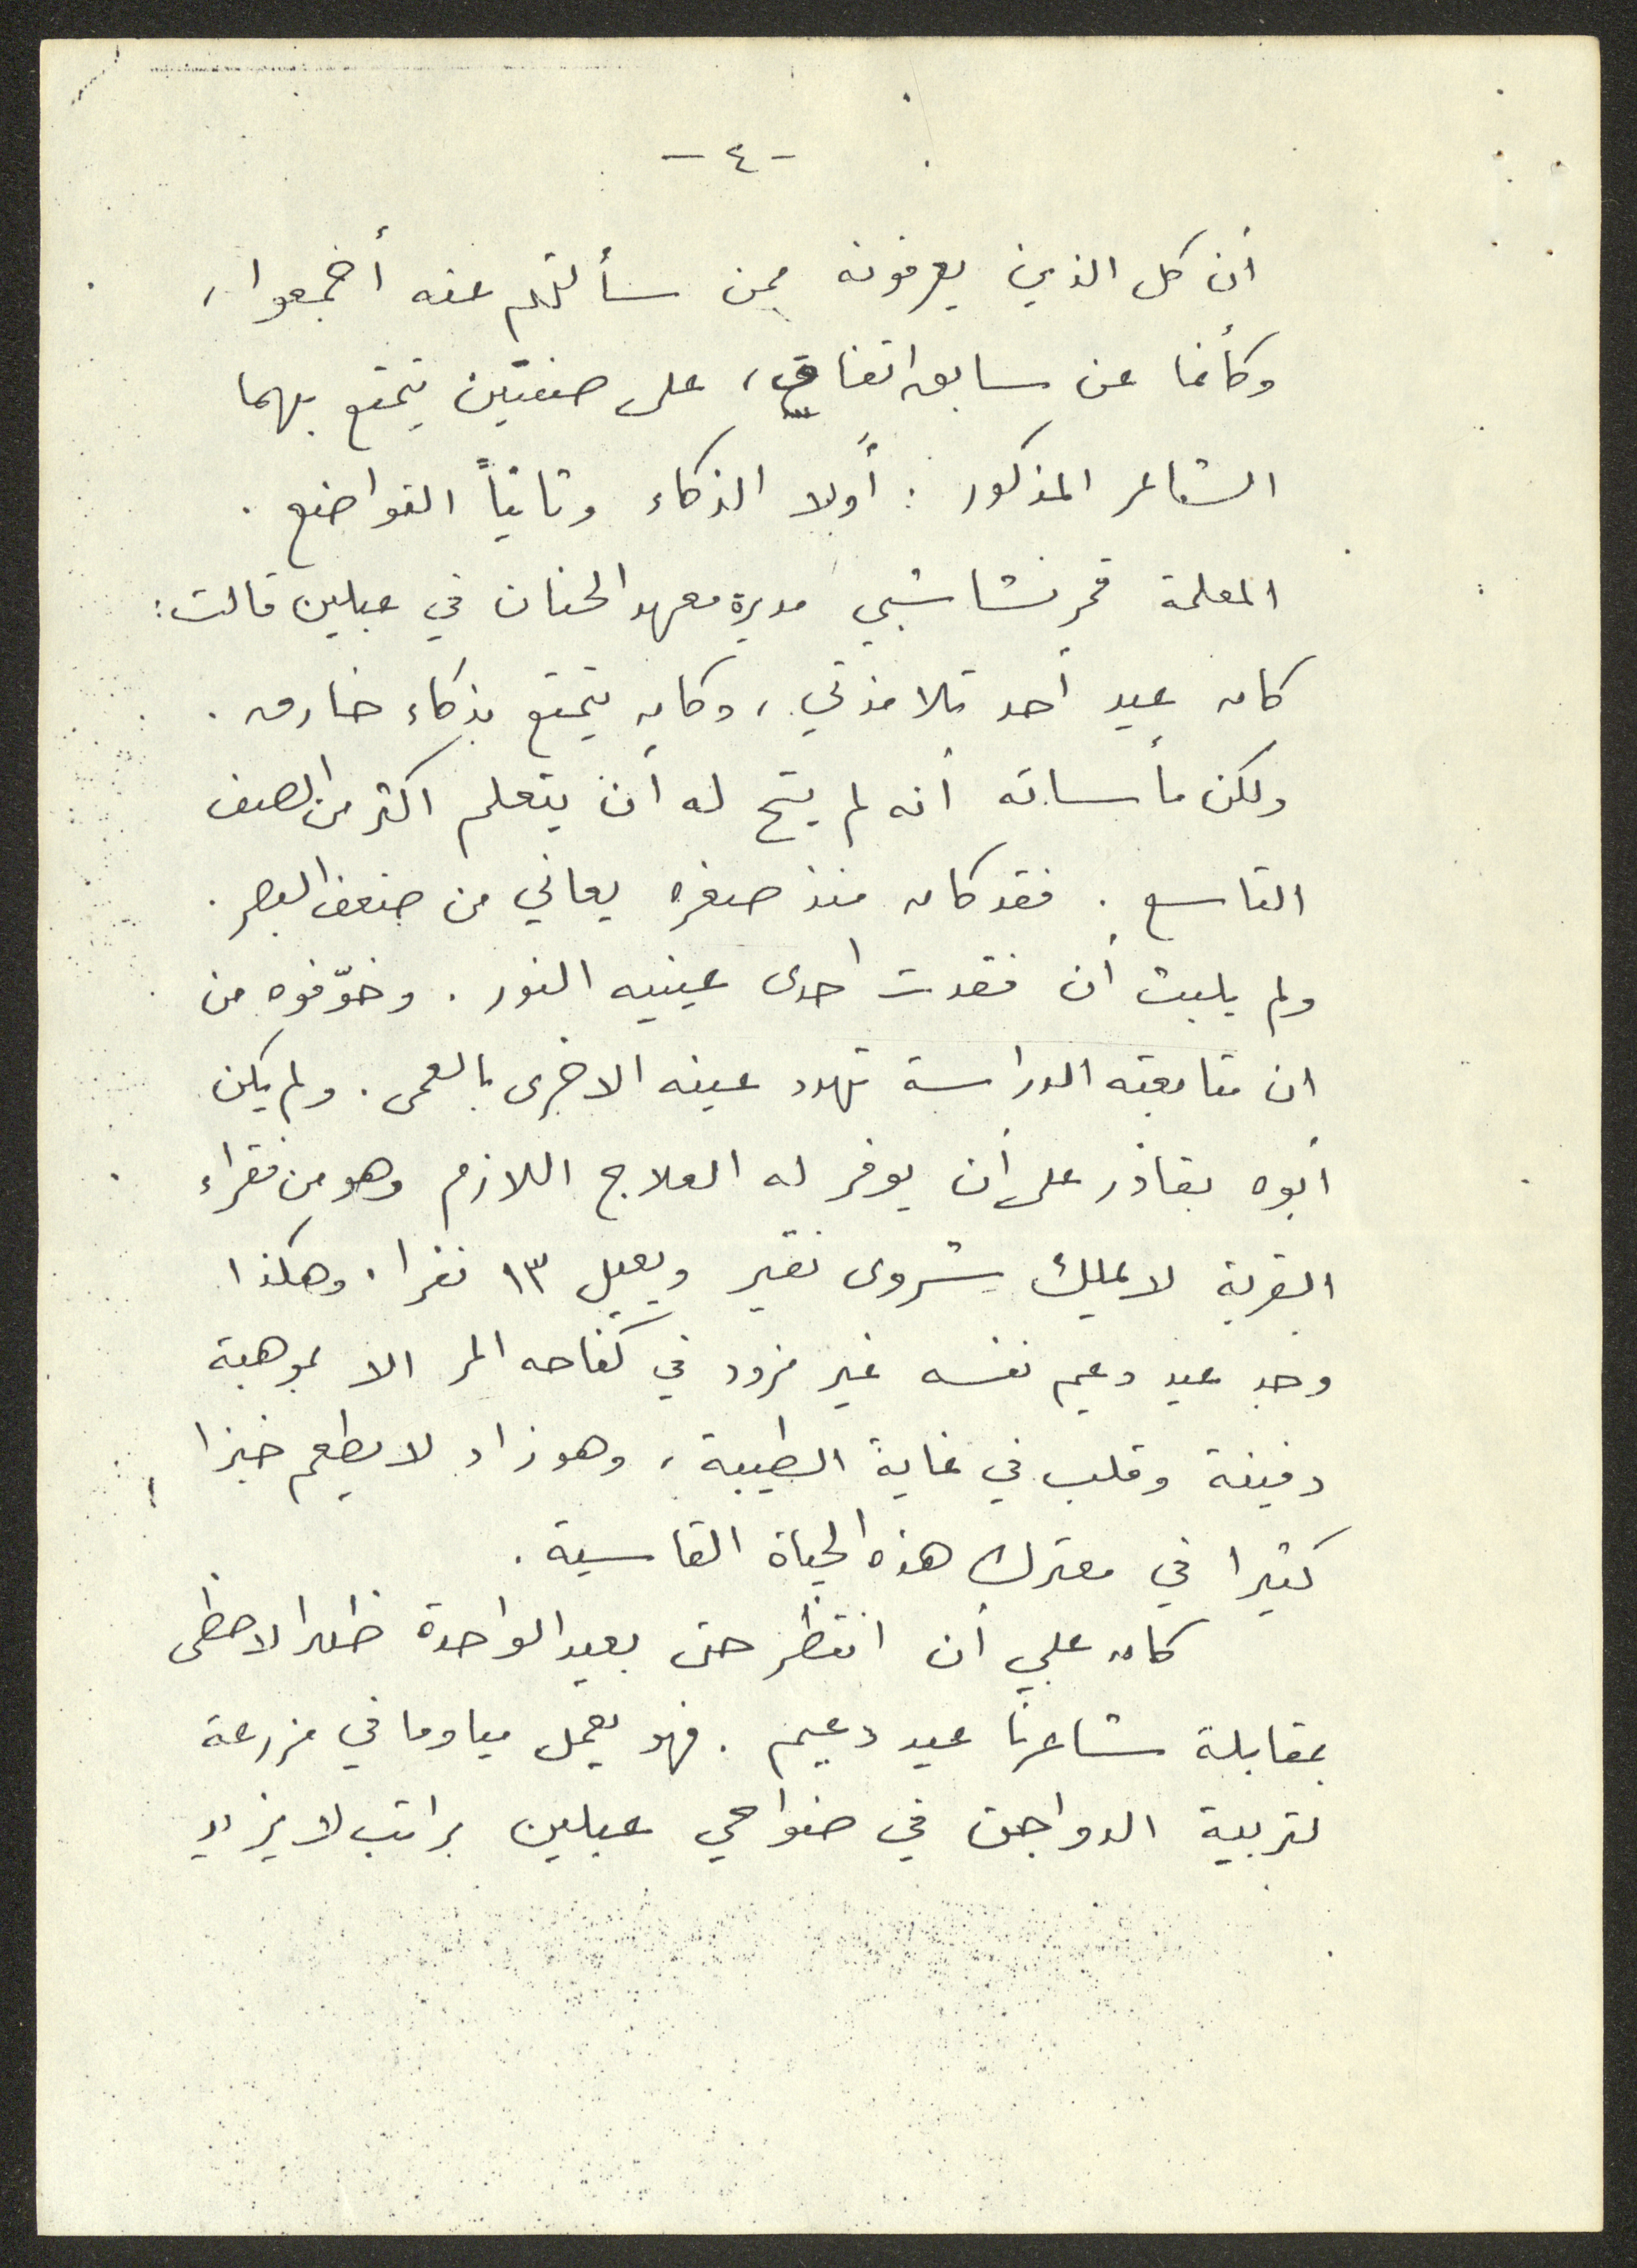 - ٤ -
أن كل الذين يعرفونه ممن سألتهم عنه أجمعوا،
وكأنما عن سابق اتفاق، على صفتين يتمتع بهما
الشاعر المذكور : أولا الذكاء وثانياً التواضع .
المعلمة قمر نشاشيبي مديرة معهد الحنان في عبلين قالت:
كان عيد أحد تلامذتي، وكان يتمتع بذكاء خارق .
ولكن مأساته أنه لم يتح له أن يتعلم اكثر من الصف
التاسع . فقد كان منذ صغره يعاني من ضعف البصر .
ولم يلبث أن فقدت احدى عينيه النور . وخوّفوه من
ان متابعته الدراسة تهدد عينه الاخرى بالعمى . ولم يكن
أبوه بقادر على أن يوفر له العلاج اللازم وهو من فقراء
القرية لا يملك شروى نقير ويعيل ١٣ نفرا . وهكذا
وجد عيد دعيم نفسه غير مزود في كفاحه المر الا بموهبة
دفينة وقلب في غاية الطيبة، وهو زاد لا يطعم خبزا
كثيرا في معترك هذه الحياة القاسية .
كان علي أن انتظر حتى بعيد الواحدة ظهرا لاحظى
بمقابلة شاعرنا عيد دعيم . فهو يعمل مياوما في مزرعة
لتربية الدواجن في ضواحي عبلين براتب لا يزيد